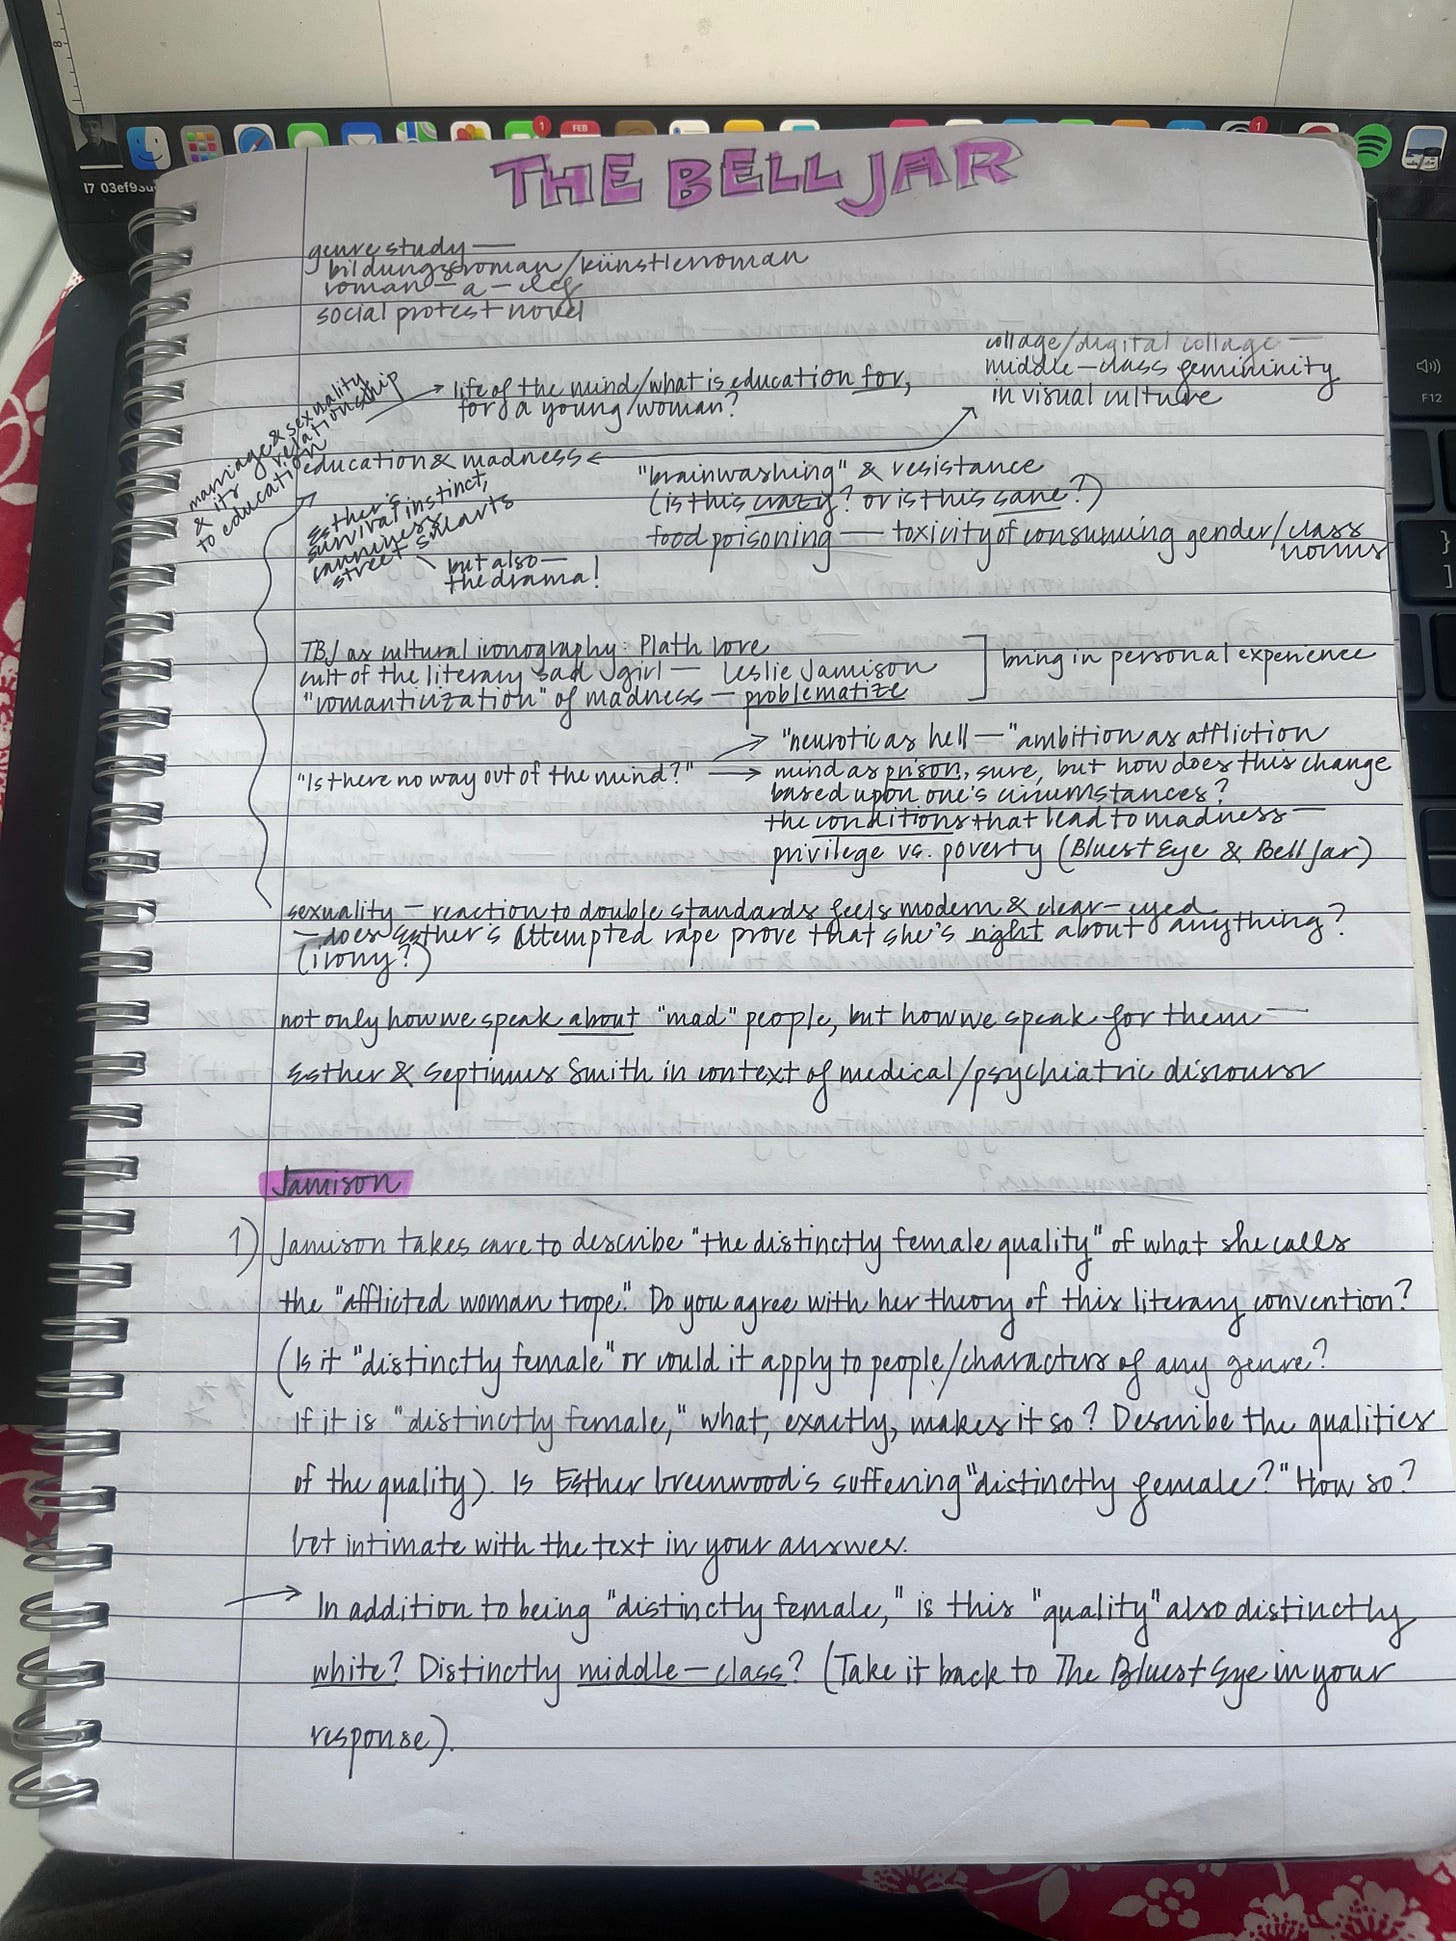 FEB
1
1
8
17 03ef93
F12
}
]
THE BELL JAR
genre study —
bildungsroman/künstlerroman
roman — a — clef
social protest novel
collage/digital collage —
middle-class femininity
in visual culture
marriage & sexuality
& its relationship
to education
life of the mind/what is education for,
for a young woman?
education & madness
"brainwashing" & resistance
(is this crazy? or is this sane?)
food poisoning — toxicity of consuming gender/class
norms
Esther's
survival instinct,
canniness
street smarts
but also —
the drama!
TBJ as cultural iconography: Plath lore
cult of the literary sad girl — Leslie Jamison
"romanticization" of madness — problematize
bring in personal experience
"Is there no way out of the mind?"
"neurotic as hell — "ambition as affliction
mind as prison, sure, but how does this change
based upon one's circumstances?
the conditions that lead to madness —
privilege vs. poverty (Bluest Eye & Bell Jar)
sexuality — reaction to double standards feels modern & clear-eyed
— does Esther's attempted rape prove that she's right about anything?
(irony?)
not only how we speak about "mad" people, but how we speak for them —
Esther & Septimus Smith in context of medical/psychiatric discourse
Jamison
1) Jamison takes care to describe "the distinctly female quality" of what she calls
the "afflicted woman trope." Do you agree with her theory of this literary convention?
(Is it "distinctly female" or could it apply to people/characters of any genre?
If it is "distinctly female," what, exactly, makes it so? Describe the qualities
of the quality). Is Esther Greenwood's suffering "distinctly female?" How so?
Get intimate with the text in your answer.
In addition to being "distinctly female," is this "quality" also distinctly
white? Distinctly middle-class? (Take it back to The Bluest Eye in your
response).